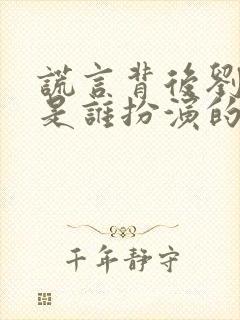 謊言背後劉
是誰扮演的
千年靜守